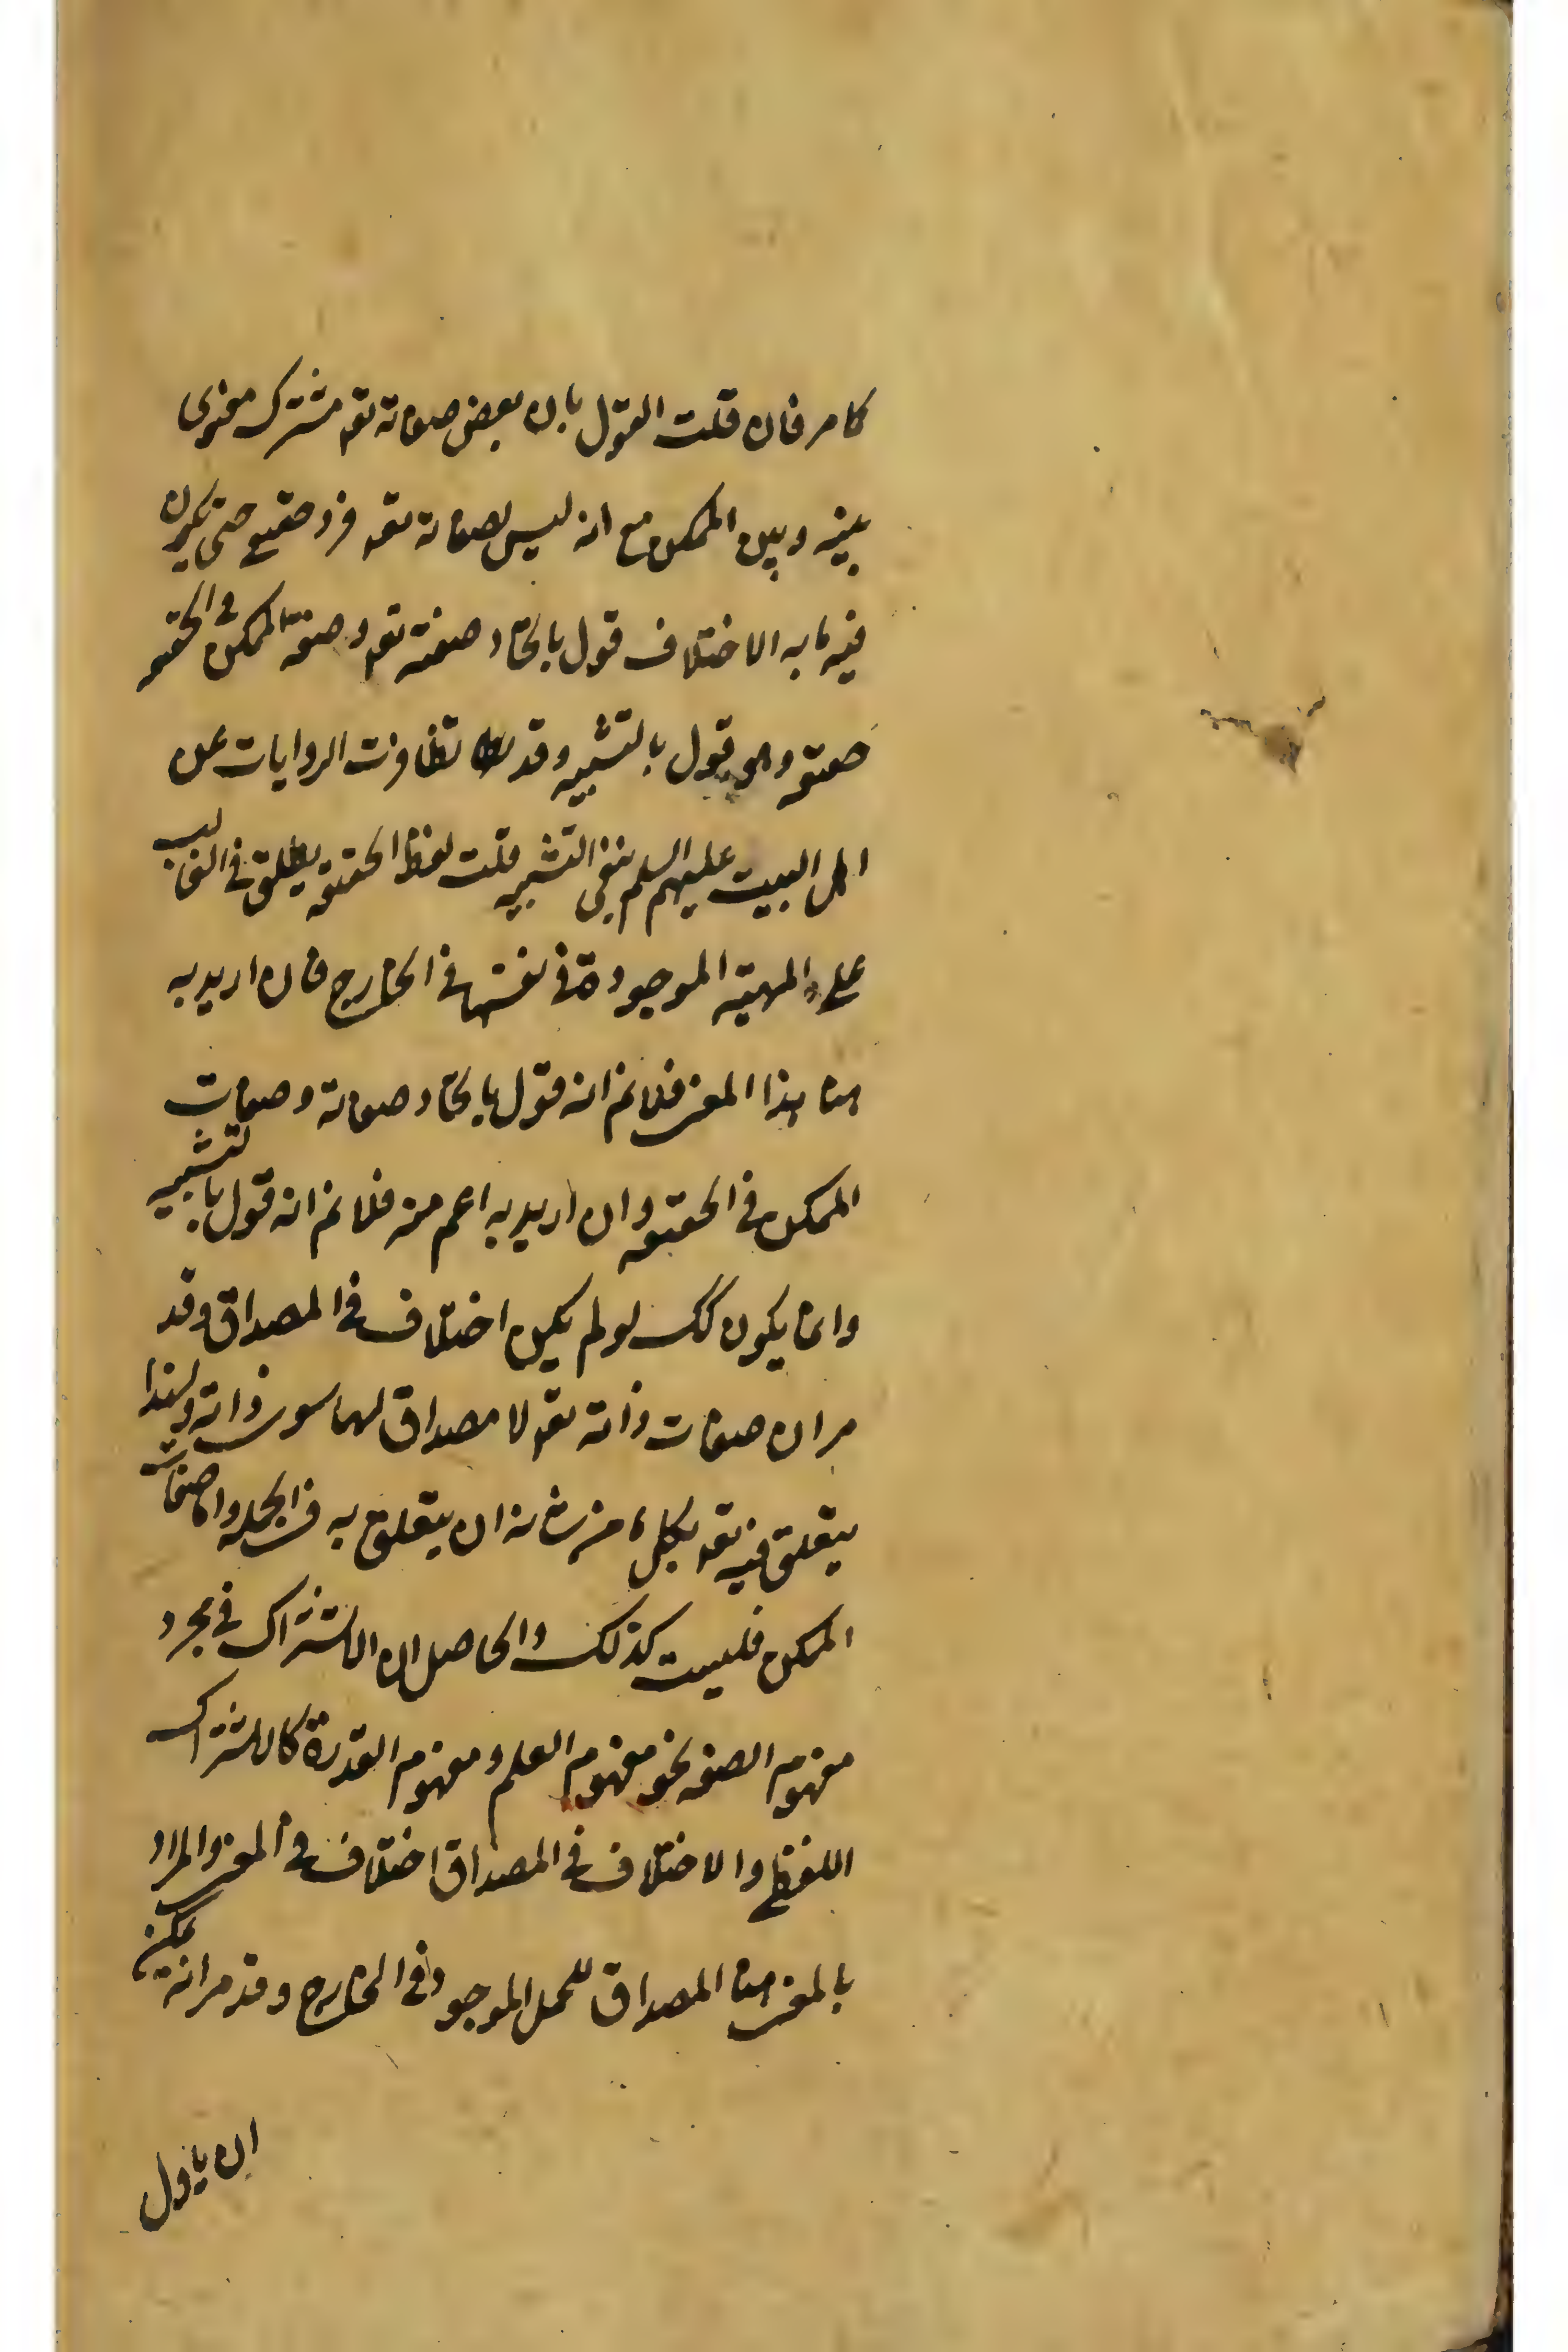 كما مر فان قلت القول بان بعض صفاته تعه مشترك معنوى
بينه وبين الممكن مع انه ليس لصفاته تعه فرد حقيقى حتى يكون
فيه ما به الاختلاف قول باتحاد صفته تعه وصفة الممكن فى الحقيقه
حقيقه وهو قول بالتشبيه وقد تظافرت الروايات عن
اهل البيت عليهم السلم بنفى التشبيه قلت لفظ الحقيقه يطلق فى الغالب
على المهيته الموجودة فى نفسها فى الخارج فان اريد به
هنا هذا المعنى فلا نم انه قول باتحاد صفاته وصفات
الممكن فى الحقيقه وان اريد به اعم منه فلا نم انه قول بالتشبيه
وانما يكون كك لو لم يكن اختلاف فى المصداق وقد
مر ان صفات ذاته تعه لا مصداق لها سوى ذاته ولهذا
يتعلق فيه تعه بكل ما من شانه ان يتعلق به فى الجمله واما صفات
الممكن فليست كذلك والحاصل ان الاشتراك فى مجرد
مفهوم الصفه نحو مفهوم العلم ومفهوم القدرة كالاشتراك
اللفظى والاختلاف فى المصداق اختلاف فى المعنى والمراد
بالمعنى هنا المصداق للحمل الموجود فى الخارج وقد مر انه يمكن
ان ياول